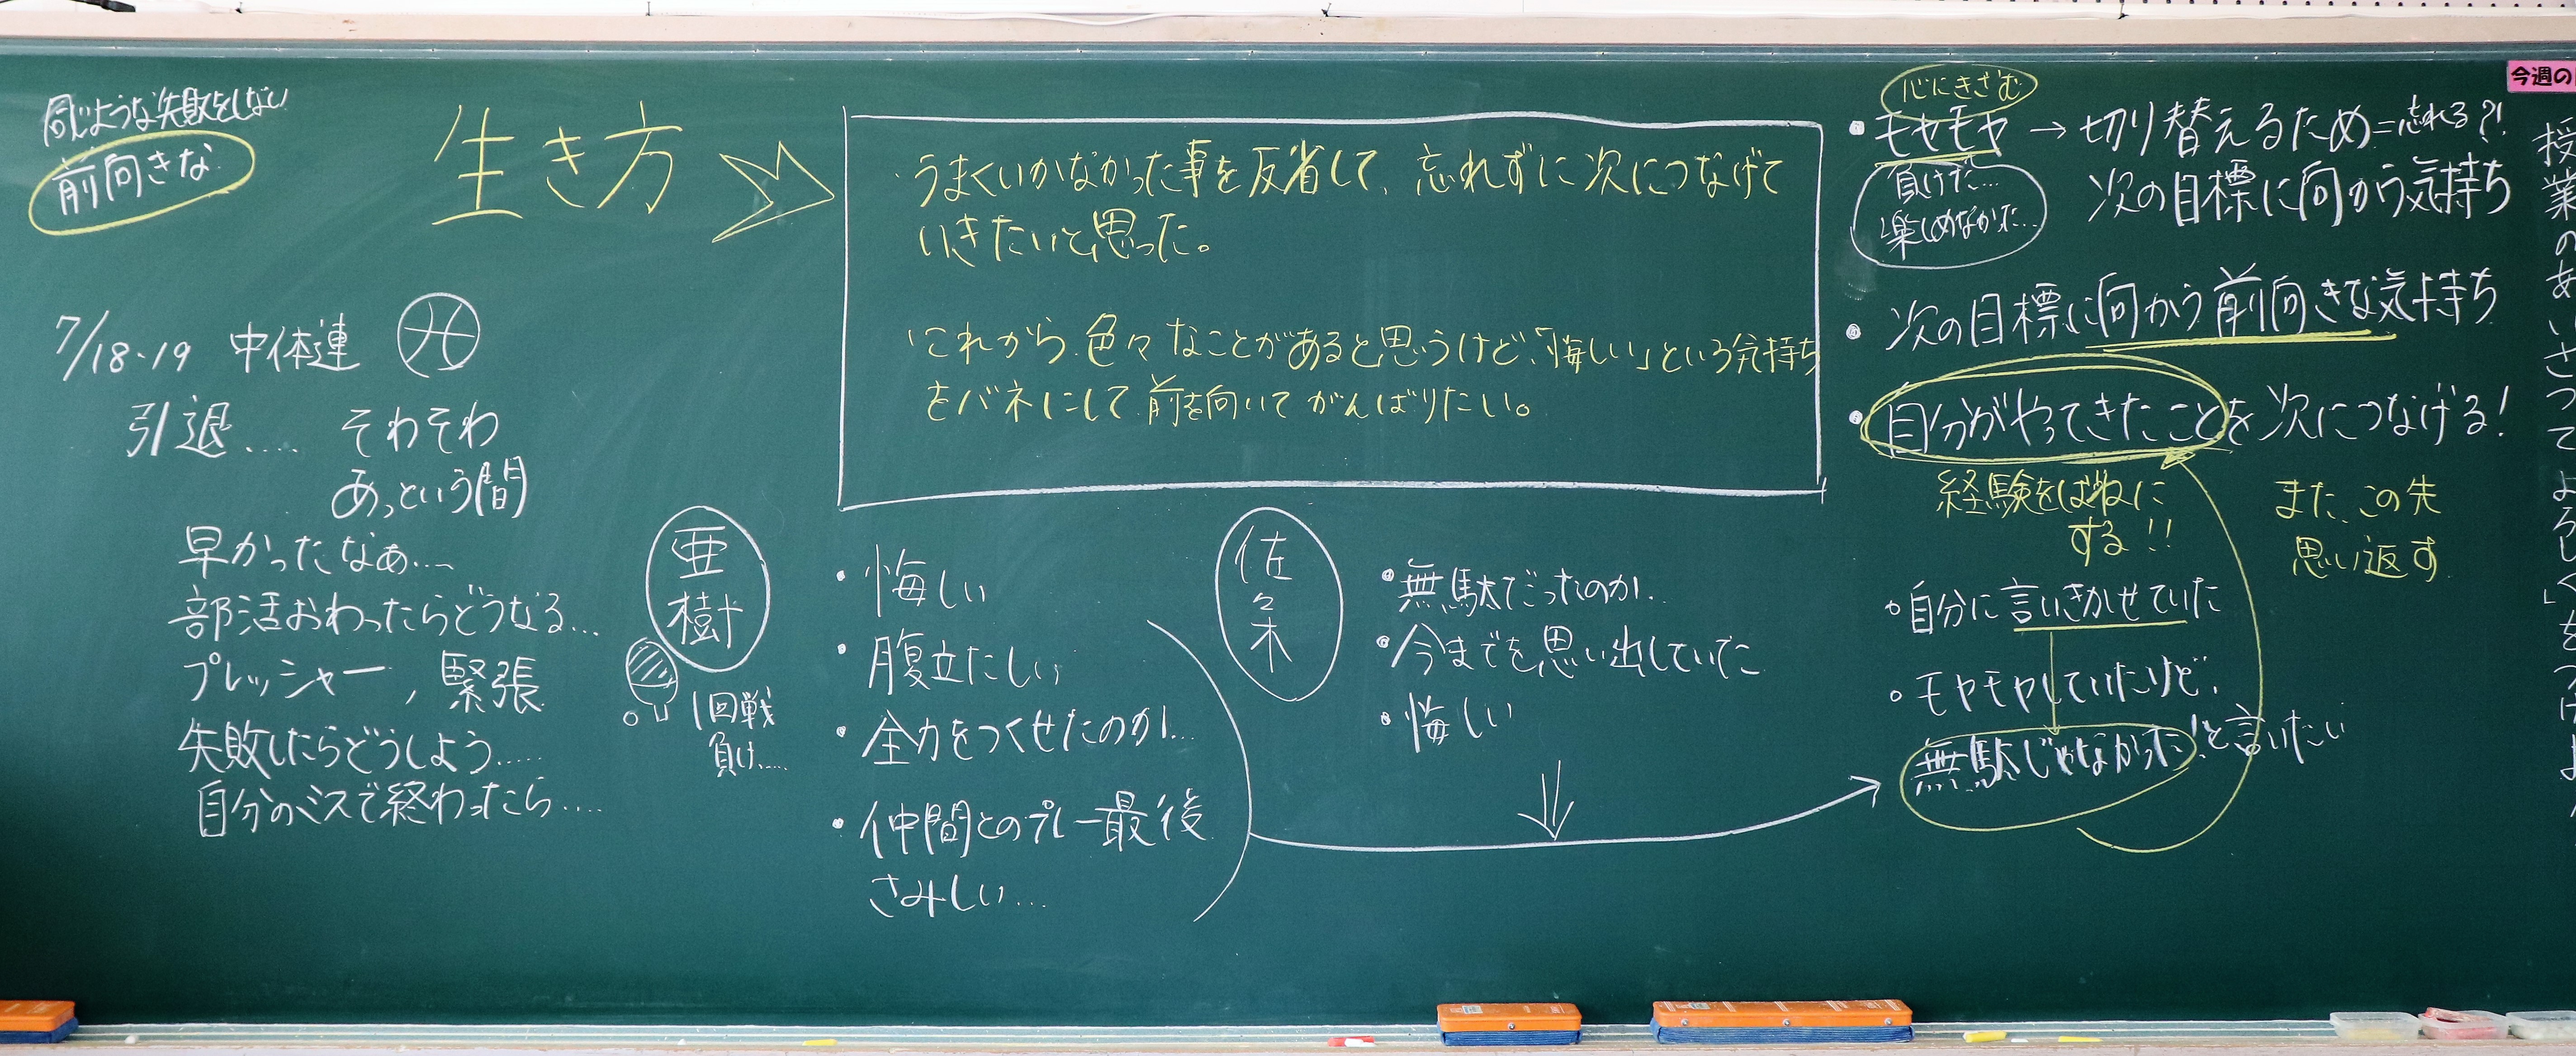 同じような失敗をしない
前向きな
生き方
7/18・19 中体連
引退.... そわそわ
あっという間
早かったなぁ...
部活おわったらどうなる...
プレッシャー, 緊張
失敗したらどうしよう.....
自分のミスで終わったら....
・うまくいかなかった事を反省して、忘れずに次につなげて
いきたいと思った。
・これから色々なことがあると思うけど、「悔しい」という気持ち
をバネにして前を向いてがんばりたい。
亜樹
1回戦
負け....
・悔しい
・腹立たしい
・全力をつくせたのか...
・仲間とのプレー最後
さみしい...
佐々木
・無駄だったのか.
・今までを思い出していた
・悔しい
心にきざむ
・モヤモヤ → 切り替えるため=忘れる?!
負けた... 次の目標に向かう気持ち
楽しめなかった...
・次の目標に向かう前向きな気持ち
・自分がやってきたことを次につなげる!
経験をばねに
する!!
また、この先
思い返す
。自分に言いきかせていた
。モヤモヤしていたけど、
無駄じゃなかった!と言いたい
今週の
授業のあいさつて